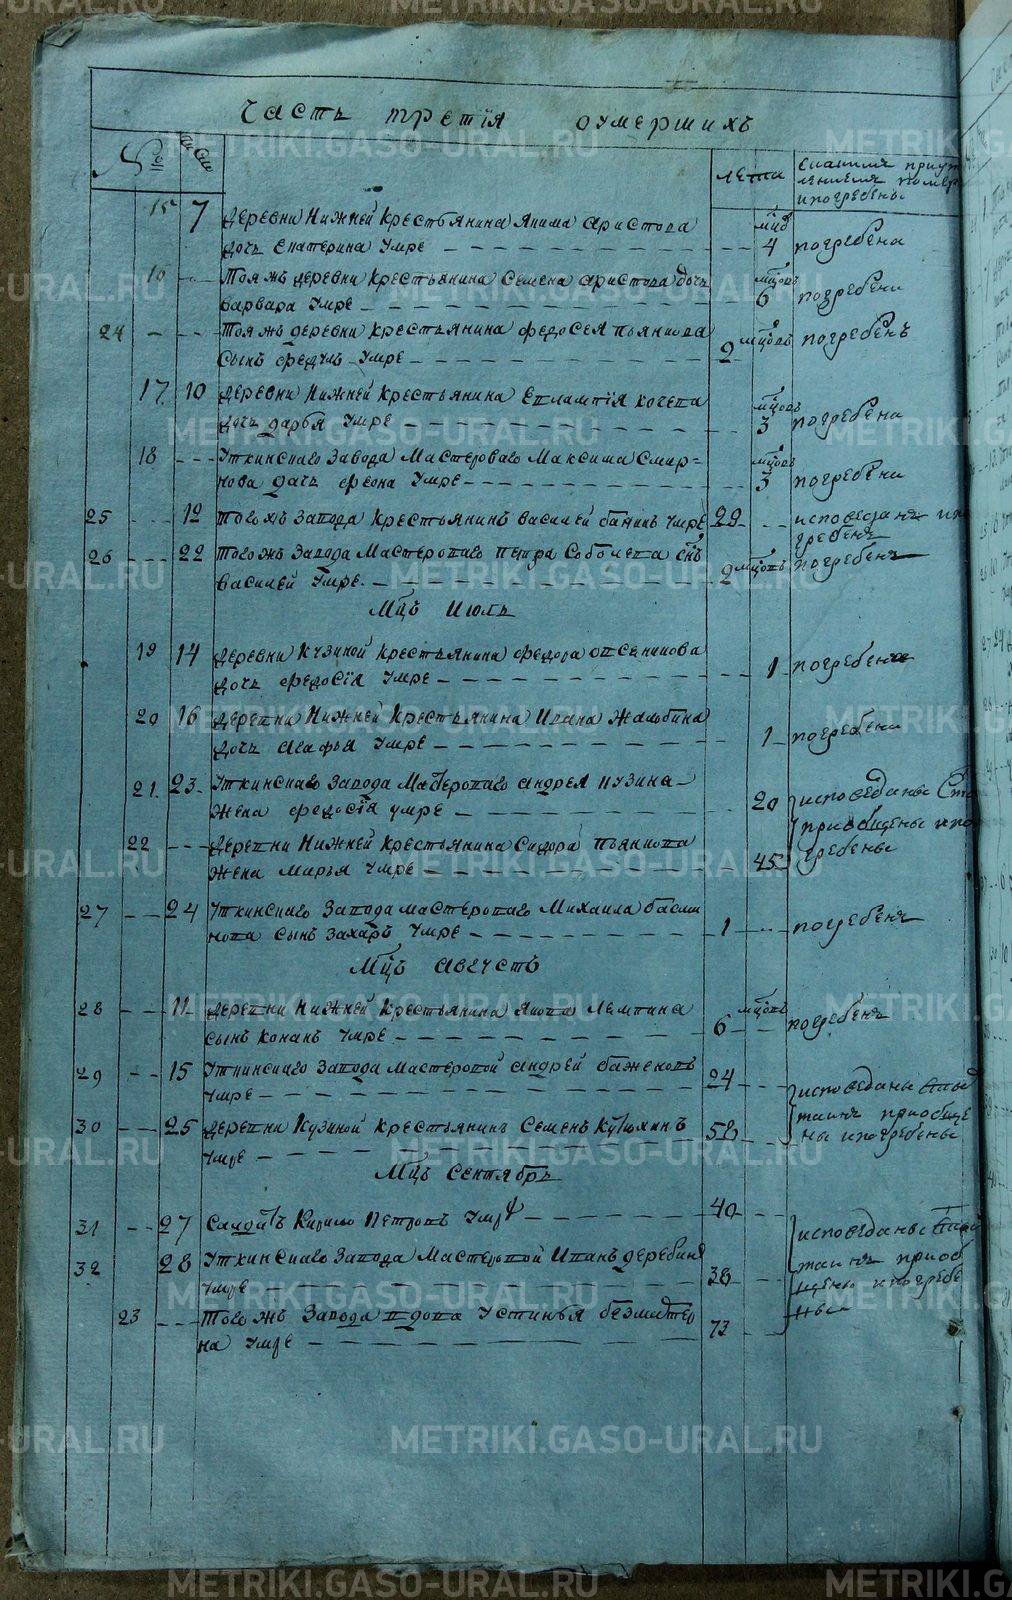 Часть третїя оумершихъ
№ число лета
15 7 деревни Нижней Крестьянина Якима Аристова мцъ
дочь Екатерина Умре 4 погребена
16 Тояжъ деревни крестьянина Семена Аристова дочь мцовъ
варвара Умре 6 погребена
24 Тояжъ деревни крестьянина федосея пьянкова
Сынъ федулъ Умре 2 мцовъ погребенъ
17 10 деревни Нижней крестьянина Евлампїя кочева мцовъ
дочь дарья Умре 3 погребена
18 Уткинскаго Завода Мастероваго Максима Смир=
нова дочь Умре 3 мцовъ погребена
25 12 тогожъ Завода Крестьянинъ василей банинъ Умре 29 исповеданъ ипо
гребенъ
26 22 тогожъ Завода Мастероваго петра Соболева снъ
василей Умре 2 мцовъ погребенъ
Мцъ Июль
19 14 деревни Кузиной крестьянина федора овсеникова
дочь федосїя Умре 1 погребена
20 16 деревни Нижней Крестьянина Ивана Жалыбина
дочь Агафья Умре 1 погребена
21 23 Уткинскаго Завода Мастероваго андрея пузина
Жена федосїя умре 20 исповеданы
приобщены ипо
22 деревни Нижней крестьянина Сидора пьянкова
Жена Марья Умре 45 гребены
27 24 Уткинскаго Завода мастероваго Михаила
нова сынъ Захаръ Умре 1 погребенъ
Мцъ Августъ
28 11 деревни Нижней Крестьянина Якова Лемпина
сынъ Конанъ Умре 6 мцовъ погребенъ
29 15 Уткинскаго Завода мастеровой андрей баженовъ
Умре 24 исповеданы
30 25 деревни Кузиной крестьянинъ Семенъ Кутюхинъ
Умре 58 таинъ приобще
ны ипогребены
Мцъ Сентябрь
31 27 Салдатъ Кирило Петровъ Умре 40 исповеданы
32 28 Уткинскаго Завода Мастеровой Иванъ деребинъ таинъ приоб
Умре 38 щены ипогребе
23 тогожъ Завода вдова Устинья безматер ны
на Умре 73
METRIKI.GASO-URAL.RU